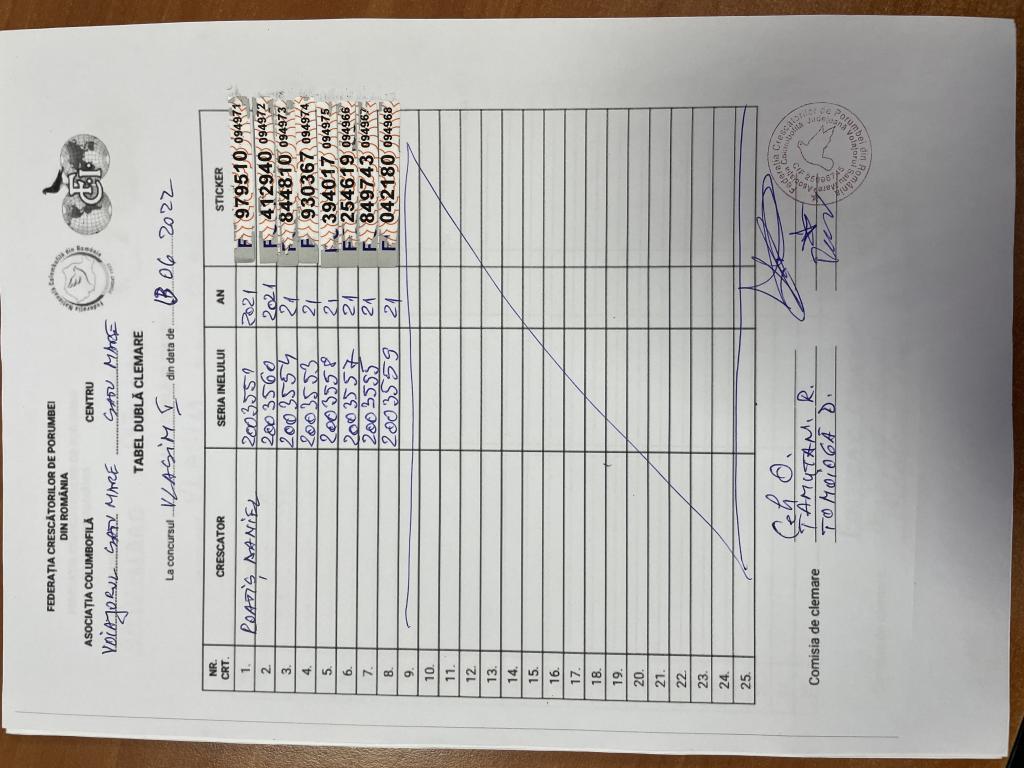 FEDERAȚIA CRESCĂTORILOR DE PORUMBEI
DIN ROMÂNIA
ASOCIAȚIA COLUMBOFILĂ CENTRU
VOIAJORUL SATU MARE SATU MARE
TABEL DUBLĂ CLEMARE
La concursul VLASIM V din data de 18.06.2022
NR. CRT. CRESCATOR SERIA INELULUI AN STICKER
1. POATIȘ DANIEL 2003551 2021 F 979510 094971
2. 2003560 2021 F 412940 094972
3. 2003554 21 F 844810 094973
4. 2003553 21 F 930367 094974
5. 2003558 21 F 394017 094975
6. 2003557 21 F 254619 094966
7. 2003555 21 F 849743 094967
8. 2003559 21 F 042180 094968
9.
10.
11.
12.
13.
14.
15.
16.
17.
18.
19.
20.
21.
22.
23.
24.
25.
Comisia de clemare Ceh O.
TĂMUȚAN. R.
TOMOIOGĂ D.